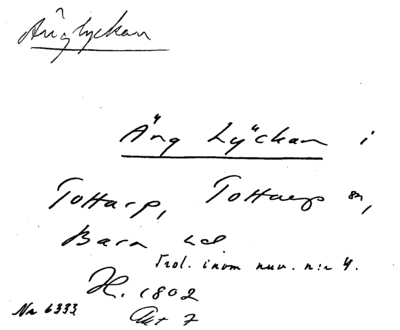 Änglyckan
Äng Lyckan i
Tottarp, Tottarps sn,
Bara hd.
Trol. inom nuv. n:r 4.
H. 1802
Akt 7
Nr 6333